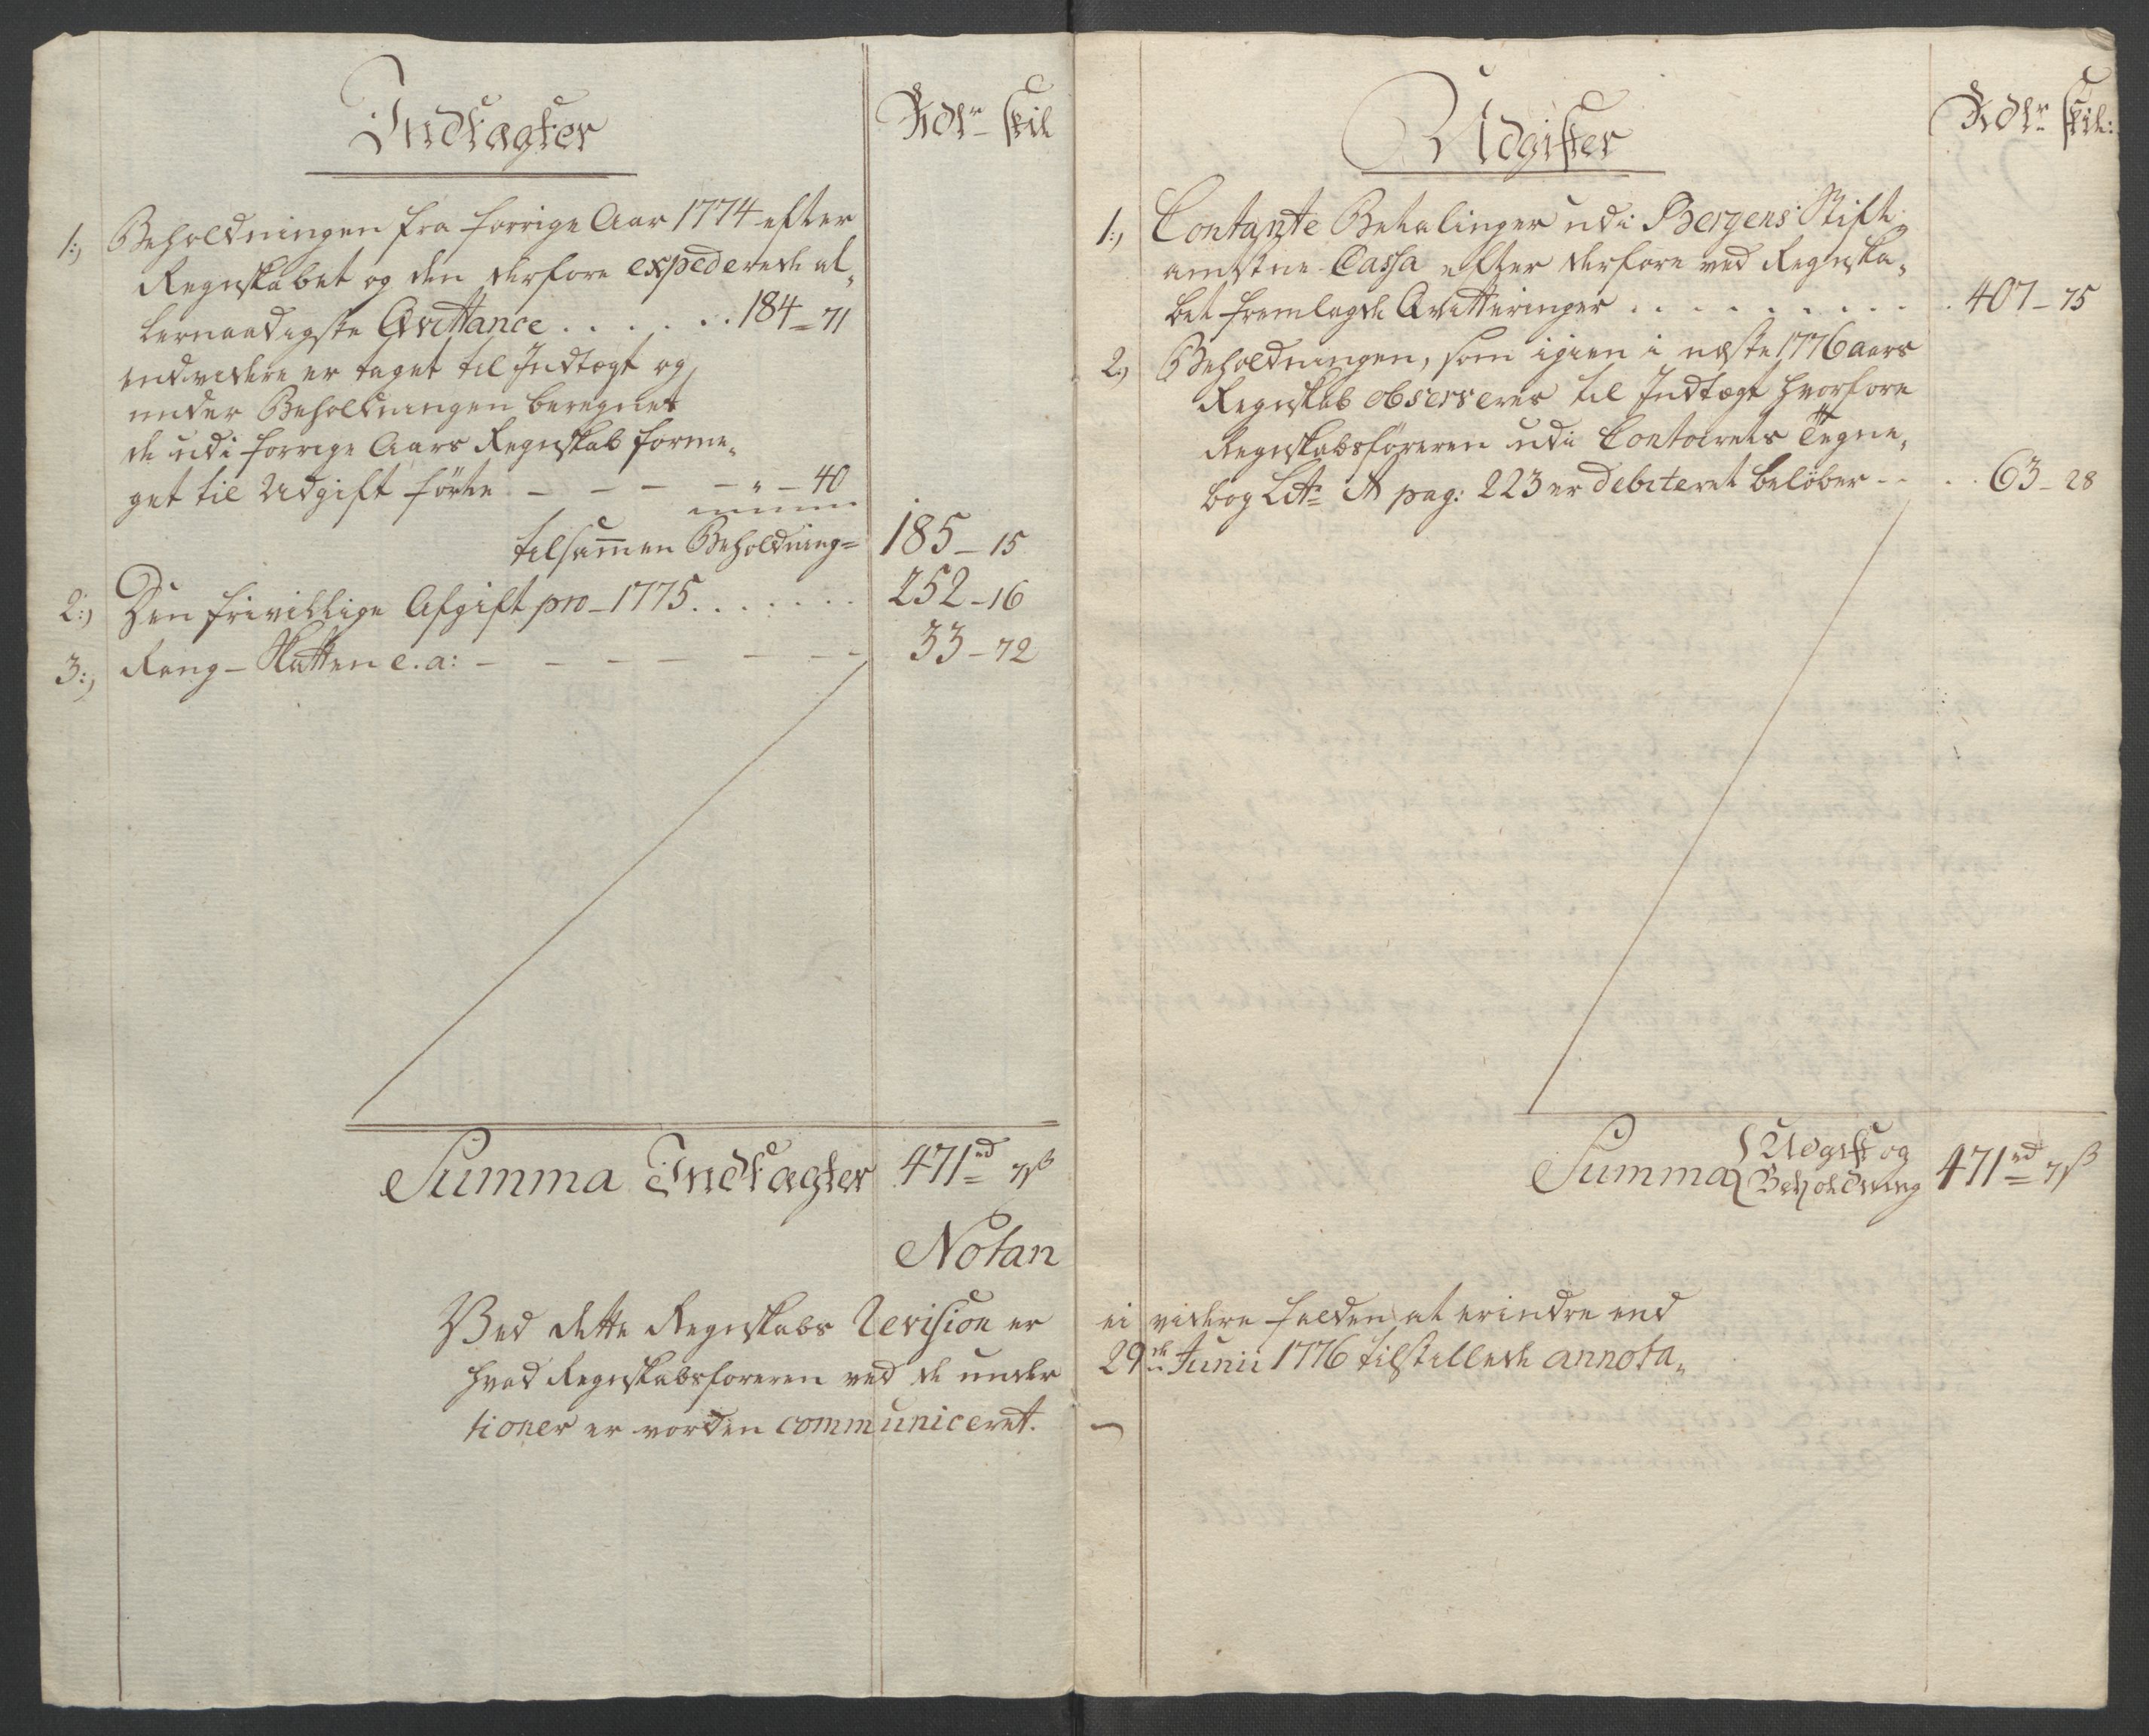 Indtægter
Rdlr skil
1:, Beholdningen fra forrige Aar 1774 efter
Regnskabet og den derfore expederede al-
lernaadigste Qvittance . . . . . . . 184 - 71
endvidere er taget til Indtægt og
under Beholdningen beregnet
de udi forrige Aars Regnskab forme-
get til Udgift förte - - - - " - 40
tilsammen Beholdning = 185 - 15
2:, Den frivillige Afgift pro - 1775 . . . . . . . 252 - 16
3:, Rang-Skatten e. a: - - - - - - - 33 - 72
Summa Indtægter 471rd 7ß
Udgifter
Rdlr skil:
1:, Contante Betalinger udi Bergens Stift-
amtstue Cassa efter derfore ved Regnska-
bet fremlagde Qvitteringer . . . . . . . . . 407 - 75
2:, Beholdningen, som igien i næste 1776 aars
Regnskab observeres til Indtægt hvorfore
Regnskabsföreren udi Contoirets Tegne-
bog Litr A pag: 223 er debiteret belöber - - . . 63 - 28
Summa Udgift og
Beholdning 471rd 7ß
Notan
Ved dette Regnskabs Revision er ei videre falden at erindre end
hvad Regnskabsföreren ved de under 29de Junii 1776 tilstillede annota-
tioner er vorden communiceret. -